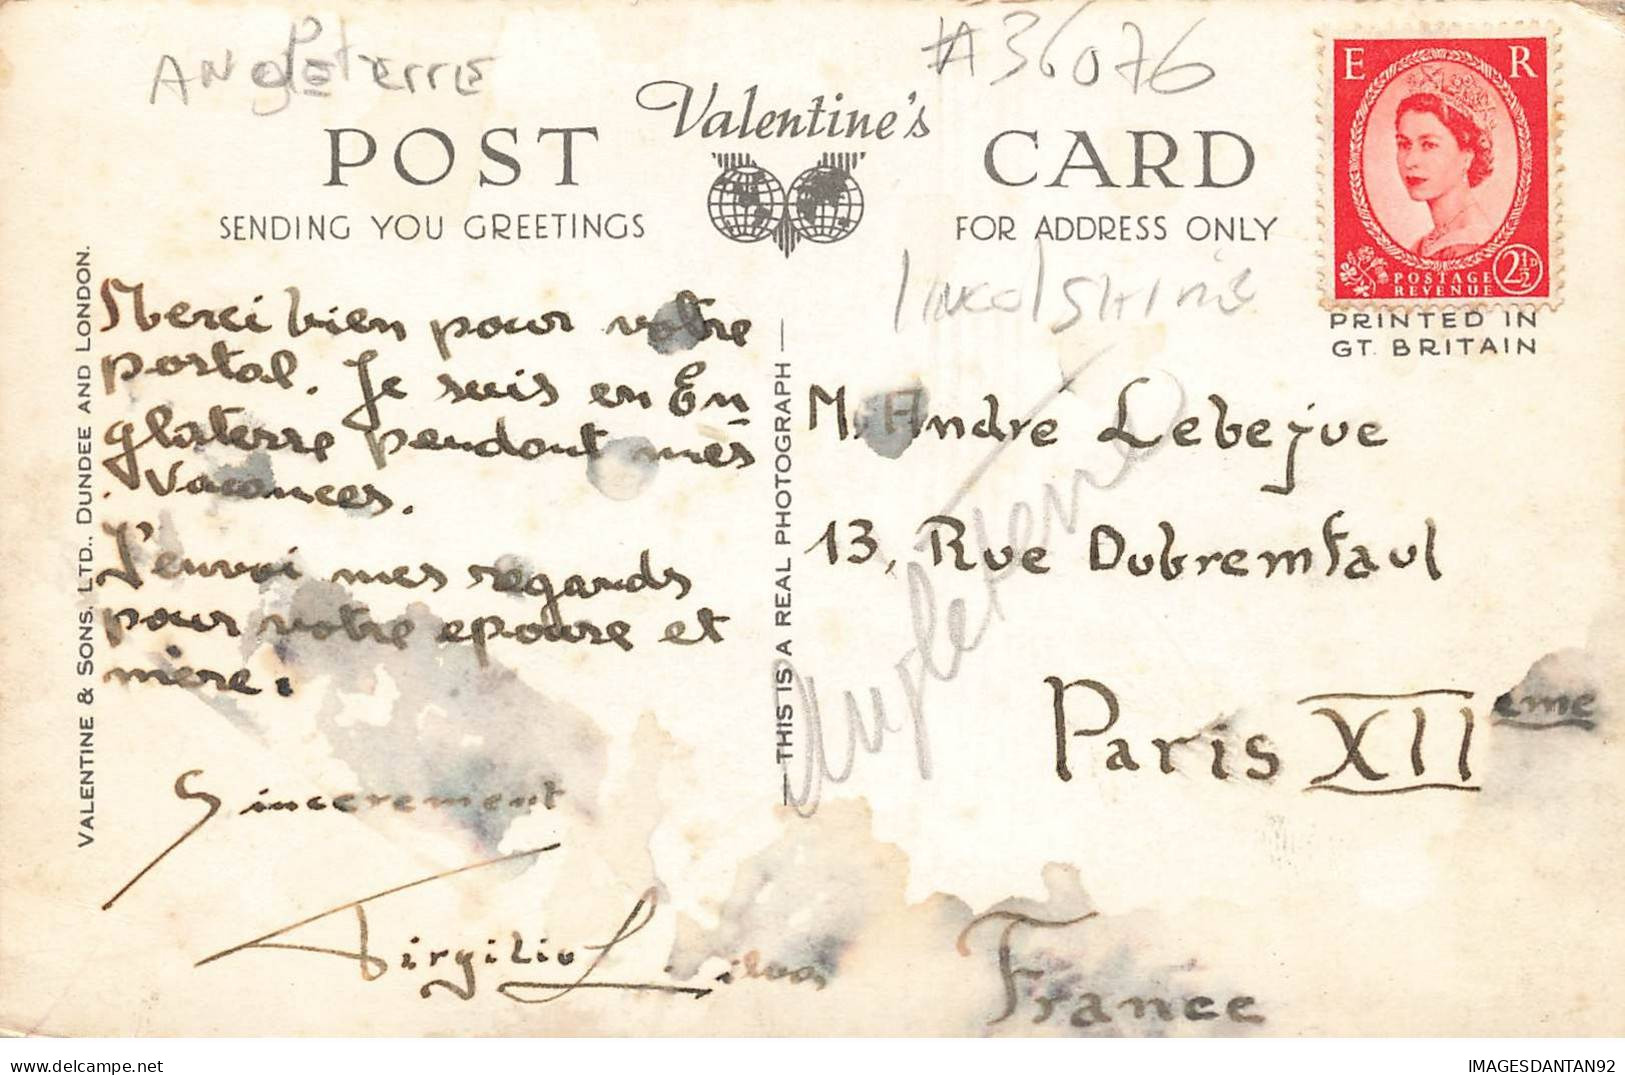 ANgLETerre
#36076
Valentine's
POST CARD
SENDING YOU GREETINGS
FOR ADDRESS ONLY
E R
POSTAGE
REVENUE
2½D
PRINTED IN
GT. BRITAIN
lincolSHire
VALENTINE & SONS, LTD., DUNDEE AND LONDON.
THIS IS A REAL PHOTOGRAPH
Merci bien pour votre
portal. Je suis en En
glaterre pendant mes
vacances.
J'envoi mes regards
pour votre epouse et
mère.
Sincerement
Virgilio Silva
M. André Lebejue
13, Rue Dubremfaul
Paris XII eme
France
Angleterre
IMAGESDANTAN92